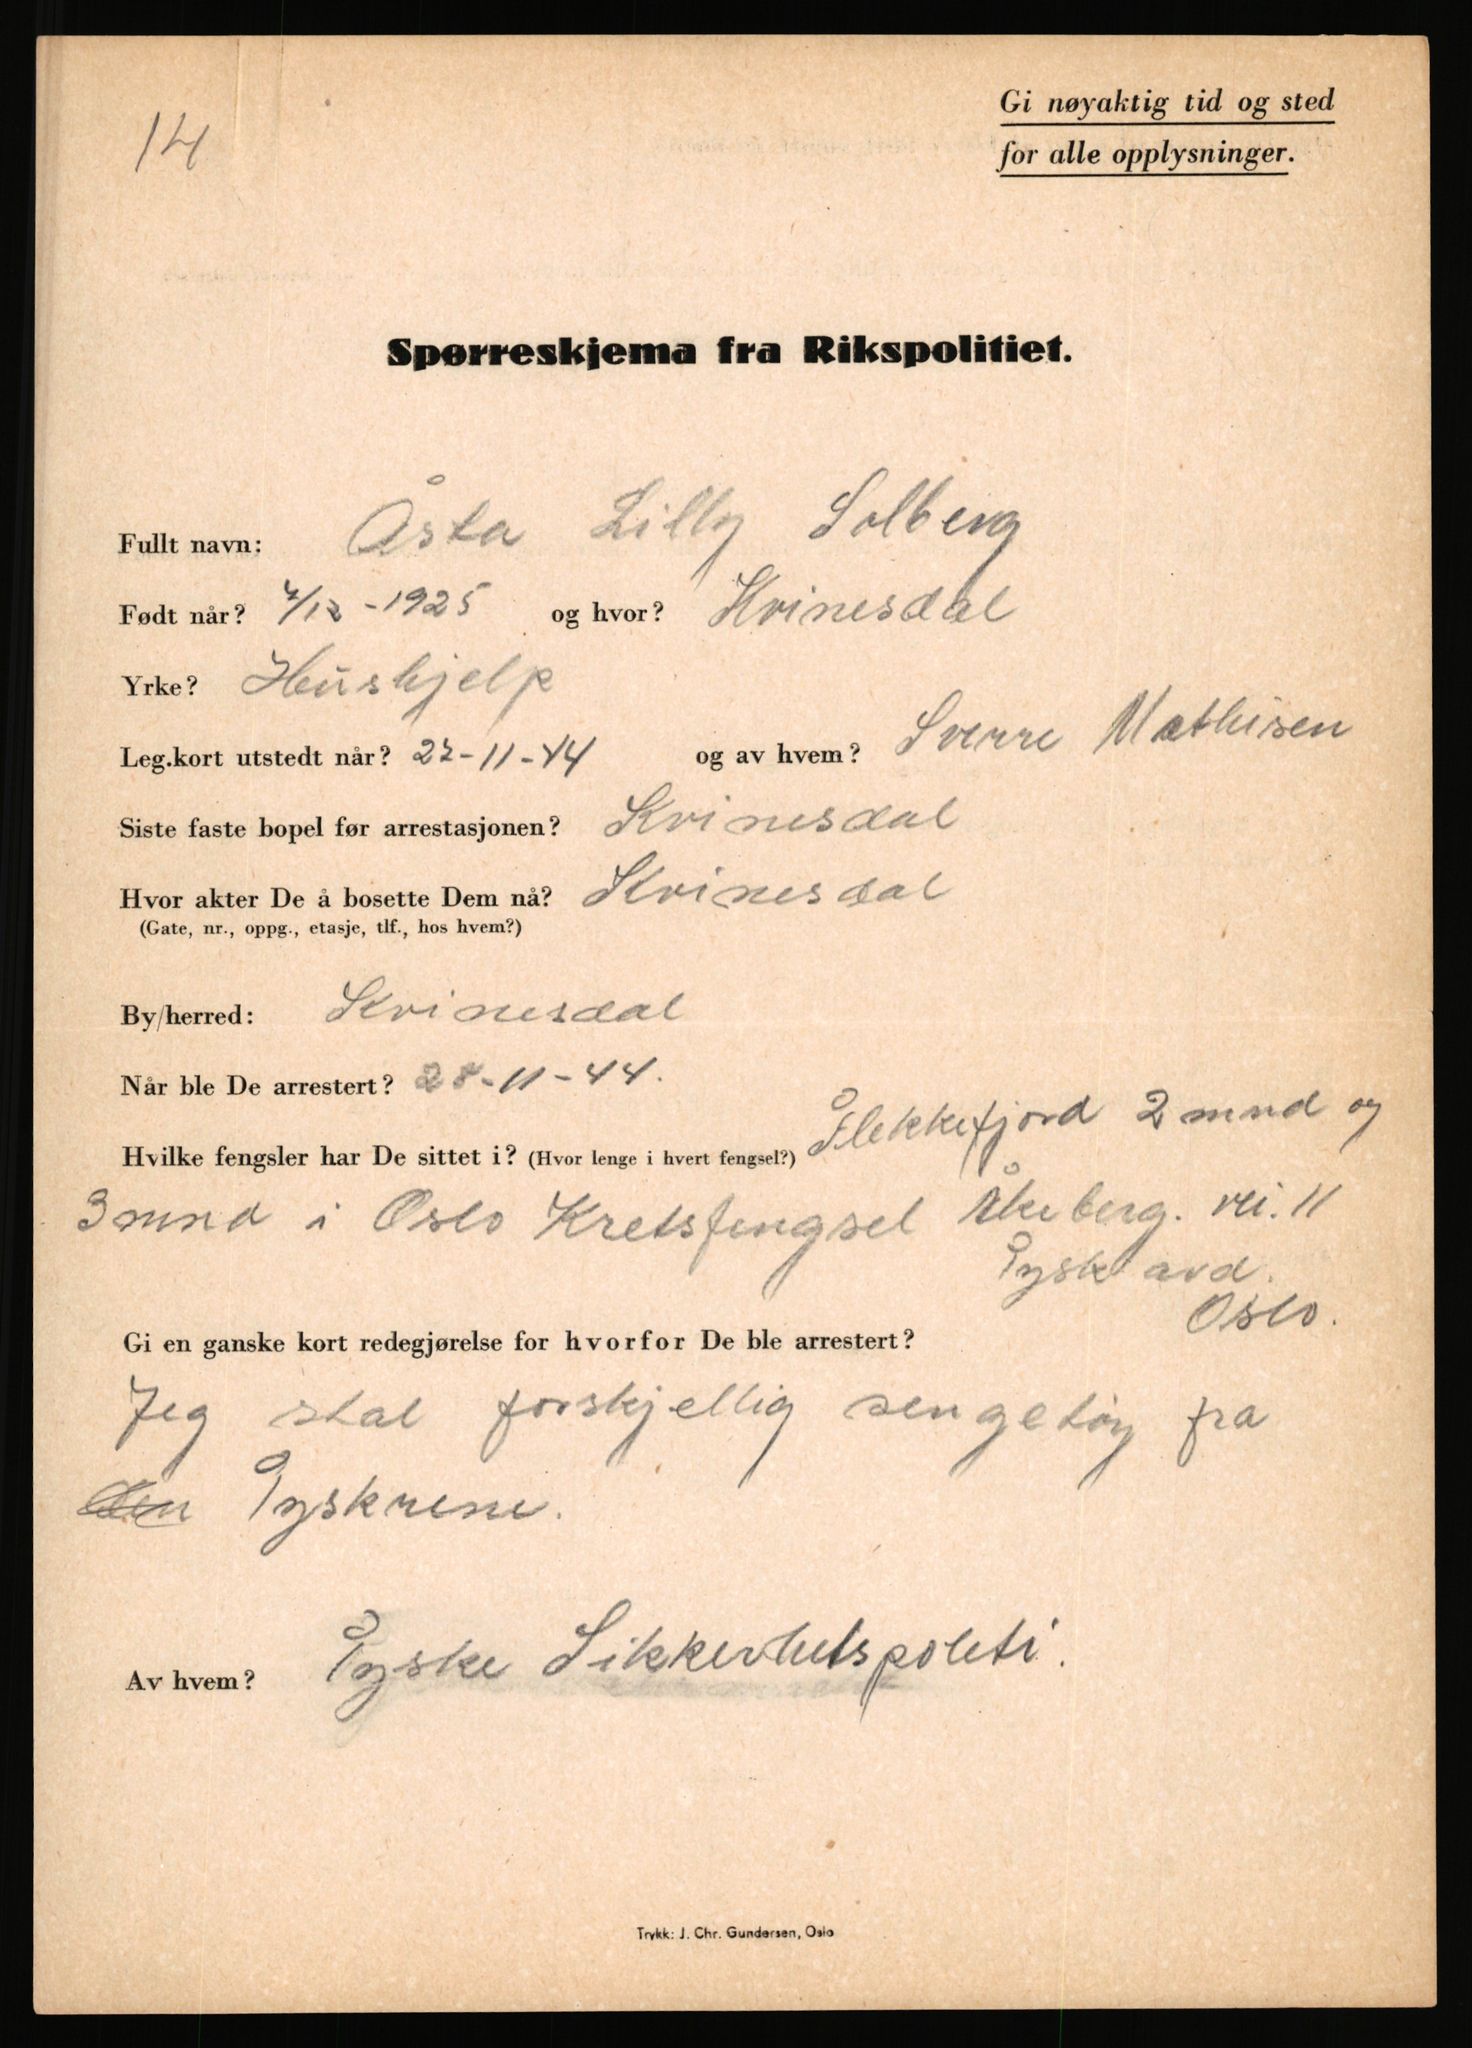 14
Gi nøyaktig tid og sted
for alle opplysninger.
Spørreskjema fra Rikspolitiet.
Fullt navn: Åsta Lilly Solberg
Født når? 4/12 -1925 og hvor? Kvinesdal
Yrke? Hushjelp
Leg.kort utstedt når? 22-11-44 og av hvem? Sverre Mathisen
Siste faste bopel før arrestasjonen? Kvinesdal
Hvor akter De å bosette Dem nå? Kvinesdal
(Gate, nr., oppg., etasje, tlf., hos hvem?)
By/herred: Kvinesdal
Når ble De arrestert? 28-11-44.
Hvilke fengsler har De sittet i? (Hvor lenge i hvert fengsel?) Flekkefjord 2 mnd og
3 mnd i Oslo Kretsfengsel Åkeberg. vei. 11
Tysk avd.
Oslo.
Gi en ganske kort redegjørelse for hvorfor De ble arrestert?
Jeg stal forskjellig sengetøy fra
den Tyskrene.
Av hvem? Tyske Sikkerhetspoleti.
Trykk: J. Chr. Gundersen, Oslo